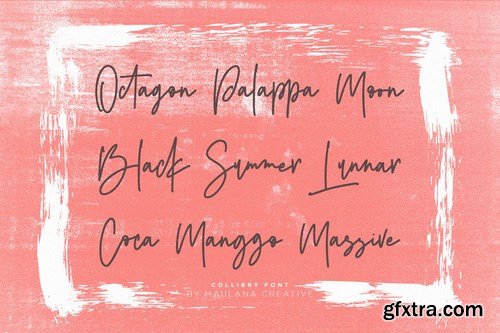 Octagon Palappa Moon
Black Summer Lunnar
Coca Manggo Massive
COLLIBRY FONT
BY MAULANA CREATIVE
gfxtra.com